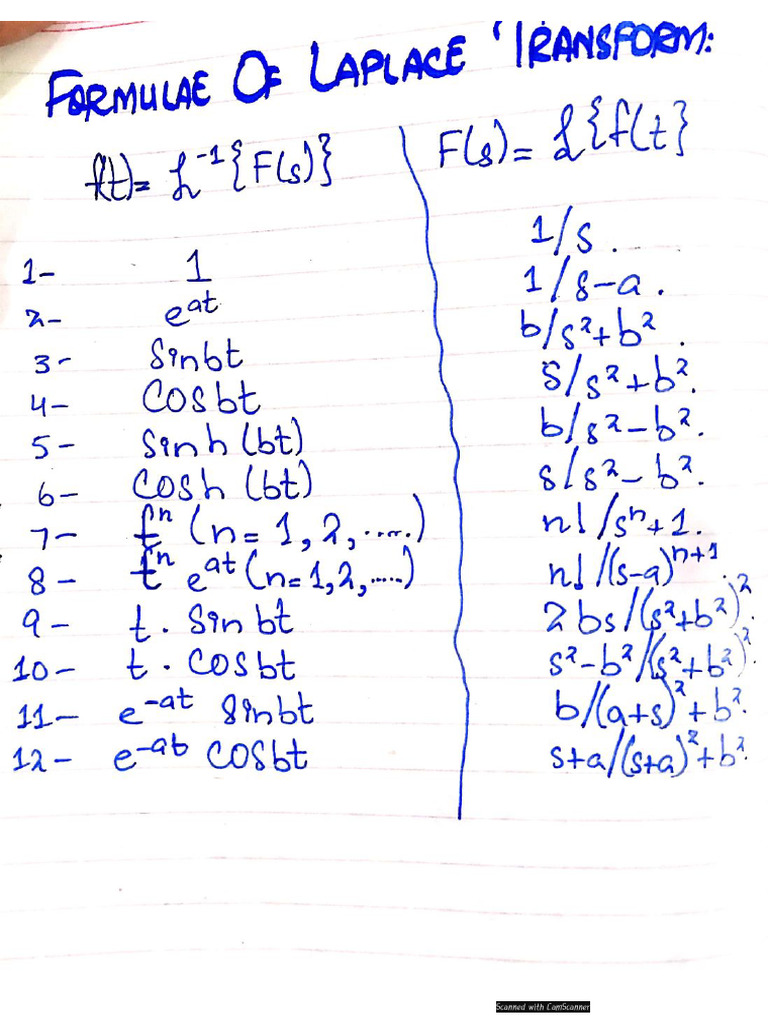 FORMULAE OF LAPLACE TRANSFORM:
f(t)= ℒ⁻¹{F(s)} F(s)= ℒ{f(t}
1- 1 1/s .
2- eᵃᵗ 1/s-a .
3- Sinbt b/s²+b² .
4- COSbt S/s²+b².
5- Sinh (bt) b/s²-b².
6- COSh (bt) s/s²-b².
7- tⁿ (n= 1, 2, .....) n!/sⁿ+1.
8- tⁿ eᵃᵗ (n=1,2, .....) n!/(s-a)ⁿ⁺¹.
9- t. Sinbt 2bs/(s²+b²)².
10- t. COSbt s²-b²/(s²+b²)².
11- e⁻ᵃᵗ Sinbt b/(a+s)²+b².
12- e⁻ᵃᵇ COSbt s+a/(s+a)²+b².
Scanned with CamScanner